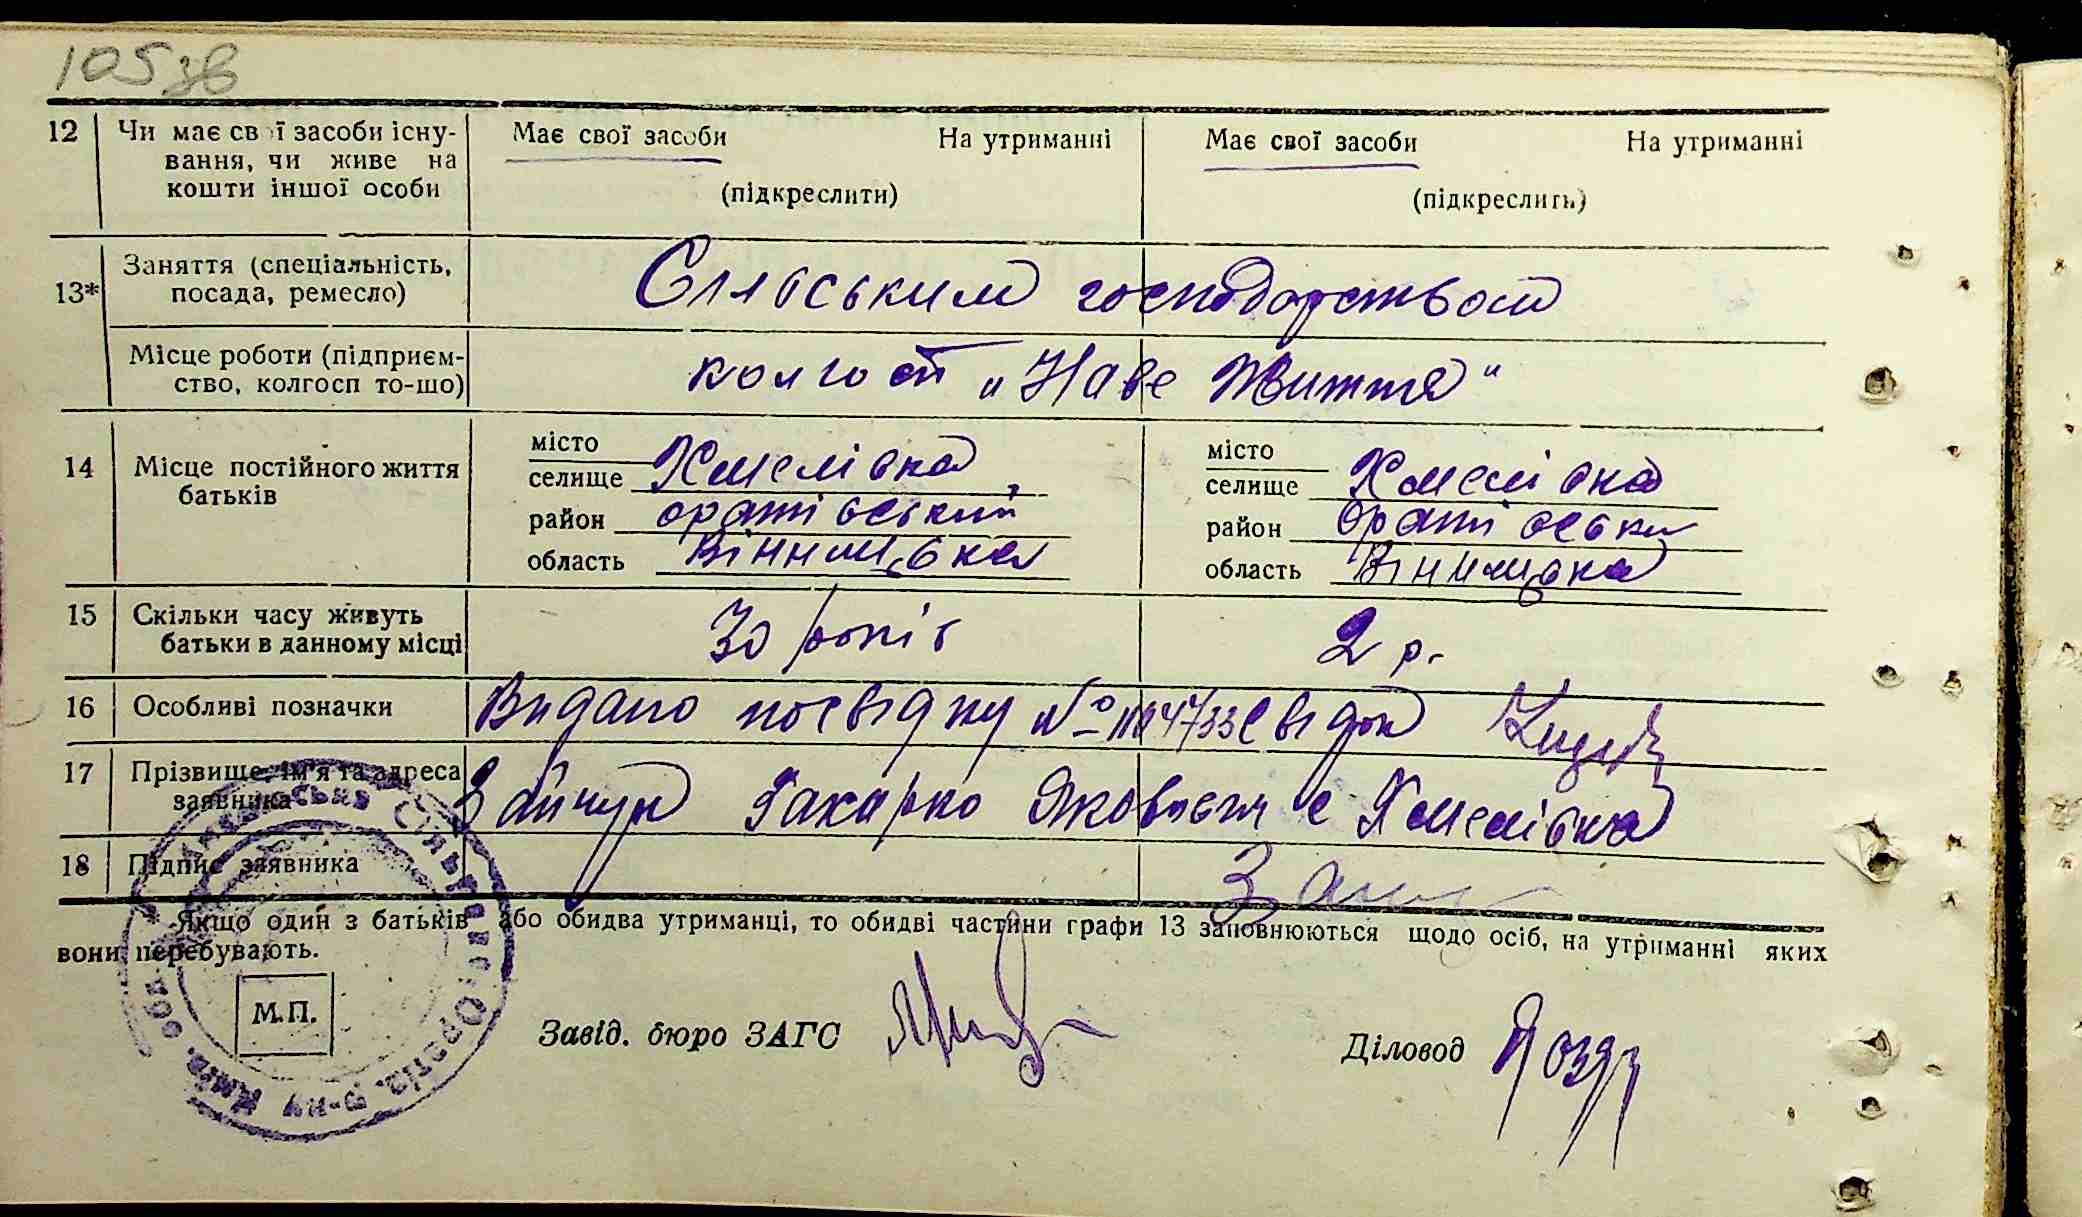 105 зв
12 Чи має свої засоби існу- Має свої засоби На утриманні Має свої засоби На утриманні
вання, чи живе на
кошти іншої особи (підкреслити) (підкреслить)
13* Заняття (спеціальність,
посада, ремесло) Сільським господарством
Місце роботи (підприєм-
ство, колгосп то-що) колгосп „Наве Життя“
14 Місце постійного життя
батьків
місто місто
селище Хмелівка, селище Хмелівка
район оратівський район Оратівськи
область Вінницька область Вінницька
15 Скільки часу живуть
батьки в данному місці 30 років 2 р.
16 Особливі позначки Видано посвідку №
17 Прізвище, ім'я та адреса
заявника Зайчук Макарко Яковлевич с Хмелівка
18 Підпис заявника
Якщо один з батьків або обидва утриманці, то обидві частини графи 13 заповнюються щодо осіб, на утриманні яких
вони перебувають.
М.П.
Завід. бюро ЗАГС Діловод
Сільрада Оратів. р-ну Київ. обл.